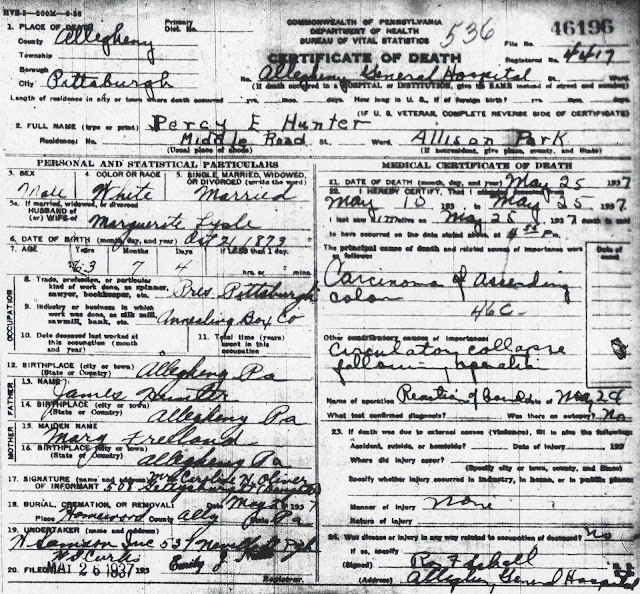 HVS-5-200M-9-36
1. PLACE OF DEATH
County Allegheny
Township
Borough
City Pittsburgh
Primary
Dist. No.
COMMONWEALTH OF PENNSYLVANIA
DEPARTMENT OF HEALTH
BUREAU OF VITAL STATISTICS
CERTIFICATE OF DEATH
536
46196
File No.
Registered No. 4417
No. Allegheny General Hospital St. Ward.
(If death occurred in a HOSPITAL or INSTITUTION, give its NAME instead of street and number)
Length of residence in city or town where death occurred yrs. mos. days. How long in U. S., if of foreign birth? yrs. mos. days.
(IF U. S. VETERAN, COMPLETE REVERSE SIDE OF CERTIFICATE)
2. FULL NAME (type or print) Percy E Hunter
Residence: No. Middle Road St. Ward. Allison Park
(Usual place of abode) (If nonresident, give place, county, and State)
PERSONAL AND STATISTICAL PARTICULARS
3. SEX
Male
4. COLOR OR RACE
White
5. SINGLE, MARRIED, WIDOWED, OR DIVORCED (write the word)
Married
5a. If married, widowed, or divorced
HUSBAND of
(or) WIFE of Marguerite Lyole
6. DATE OF BIRTH (month, day, and year) Oct 21 1873
7. AGE Years Months Days If LESS than 1 day,
63 7 4 hrs. or min.
OCCUPATION
8. Trade, profession, or particular kind of work done, as spinner, sawyer, bookkeeper, etc. Pres. Pittsburgh
9. Industry or business in which work was done, as silk mill, sawmill, bank, etc. Annealing Box Co
10. Date deceased last worked at this occupation (month and year)
11. Total time (years) spent in this occupation
12. BIRTHPLACE (city or town) Allegheny Pa
(State or Country)
FATHER
13. NAME James Hunter
14. BIRTHPLACE (city or town) Allegheny Pa
(State or Country)
MOTHER
15. MAIDEN NAME Mary Freeland
16. BIRTHPLACE (city or town) Allegheny Pa
(State of Country)
17. SIGNATURE (name and address) Mrs H. Oliver
OF INFORMANT 508
18. BURIAL, CREMATION, OR REMOVAL: Date May 1937
Place Homewood County Ally State Pa
19. UNDERTAKER (name and address)
H Samson Inc 537 Neville Pgh
Curtis
20. FILED MAY 26 1937 193 Emily J
Registrar.
MEDICAL CERTIFICATE OF DEATH
21. DATE OF DEATH (month, day, and year) May 25 1937
22. I HEREBY CERTIFY, That I attended deceased from
May 10 193 to May 25 1937
I last saw him alive on May 25 1937 death is said
to have occurred on the date stated above at P m.
The principal cause of death and related causes of importance were as follows:
Date of onset
Carcinoma of Ascending
colon
46C
Other contributory causes of importance:
Circulatory collapse
following operation
Name of operation Resection of bowel date of May 24
What test confirmed diagnosis? Was there an autopsy? No
23. If death was due to external causes (violence), fill in also the following:
Accident, suicide, or homicide? Date of injury 193
Where did injury occur?
(Specify city or town, county, and State)
Specify whether injury occurred in industry, in home, or in public place:
Manner of injury None
Nature of injury
24. Was disease or injury in any way related to occupation of deceased? No
If so, specify
(Signed) Roy F
(Address) Allegheny General Hospital